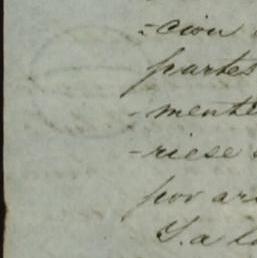 -cion
partes
-mente
-riese
por
Y a la